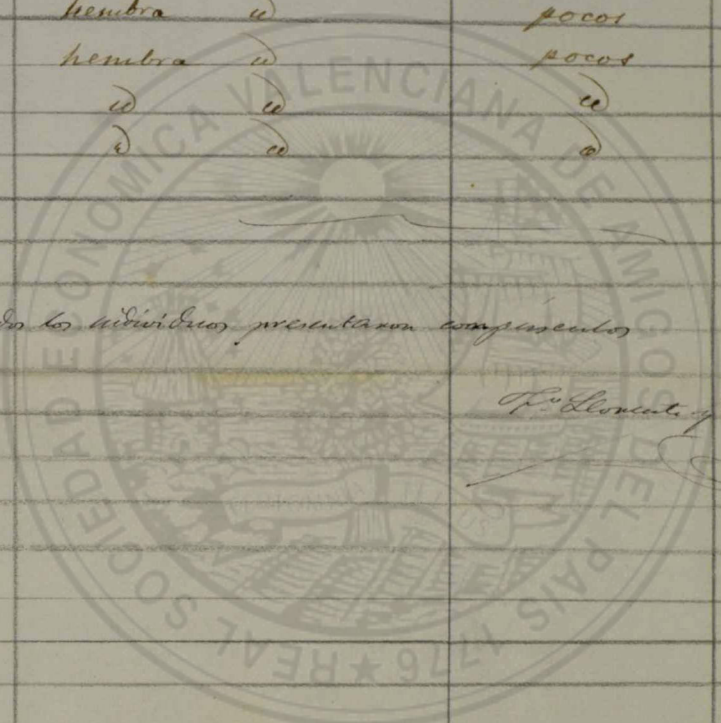 hembra id pocos
hembra id pocos
id id id
id id id
los individuos presentaron corpúsculos
Llorente y
REAL SOCIEDAD ECONOMICA VALENCIANA DE AMIGOS DEL PAIS 1776 ★